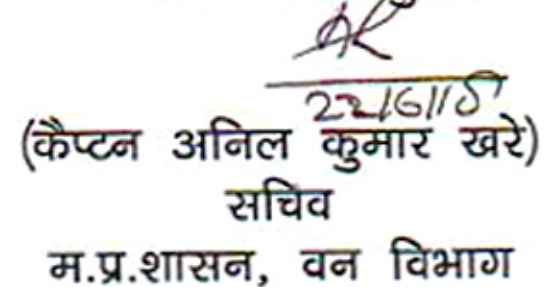 (कैप्टन अनिल कुमार खरे)
सचिव
म.प्र.शासन, वन विभाग